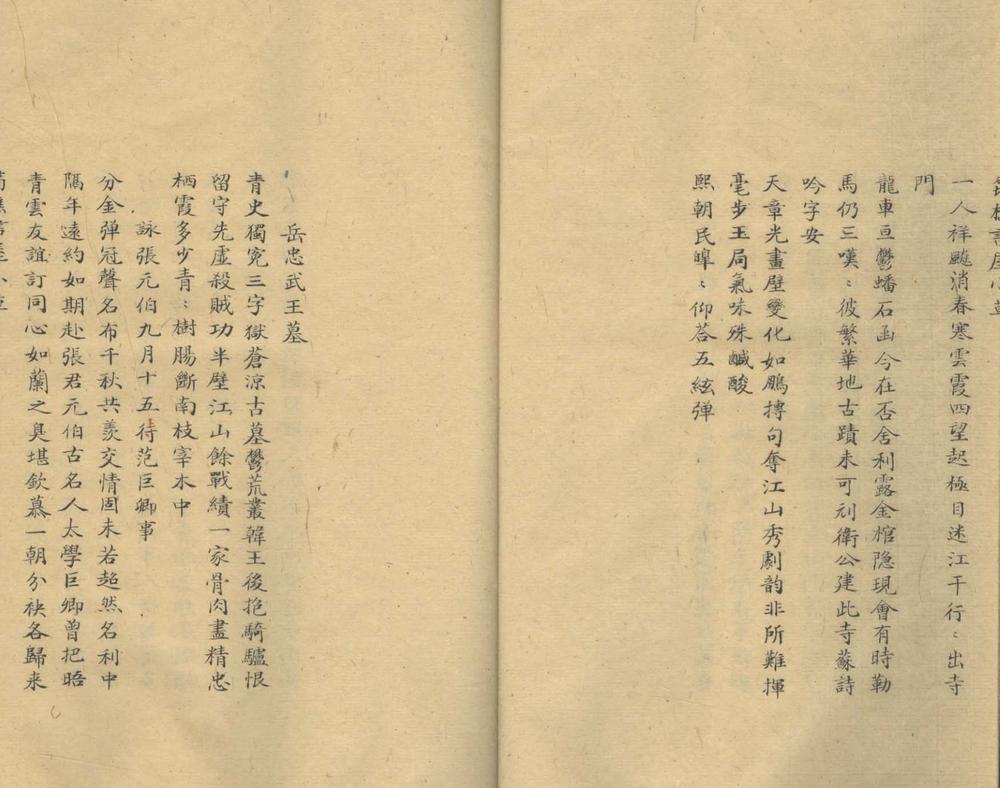 一人祥飈消春寒雲霞四望起極目迷江干行〻出寺
門
龍車亘鬱蟠石函今在否舍利露金棺隐現會有時勒
馬仍三嘆〻彼繁華地古蹟未可刋衛公建此寺蘇詩
吟字安
天章光畫壁變化如鵬摶句奪江山秀劇韵非所難揮
毫步玉局氣味殊鹹酸
熙朝民皥〻仰荅五絃弹
岳忠武王墓
青史獨寃三字獄蒼涼古墓鬱荒叢韓王後抱騎驢恨
留守先虚殺賊功半壁江山餘戰績一家骨肉盡精忠
栖霞多少青〻樹腸斷南枝宰木中
詠張元伯九月十五待范巨卿事
分金弹冠聲名布千秋共羡交情固未若超然名利中
隔年遠約如期赴張君元伯古名人太學巨卿曾把晤
青雲友誼訂同心如蘭之臭堪欽慕一朝分袂各歸来